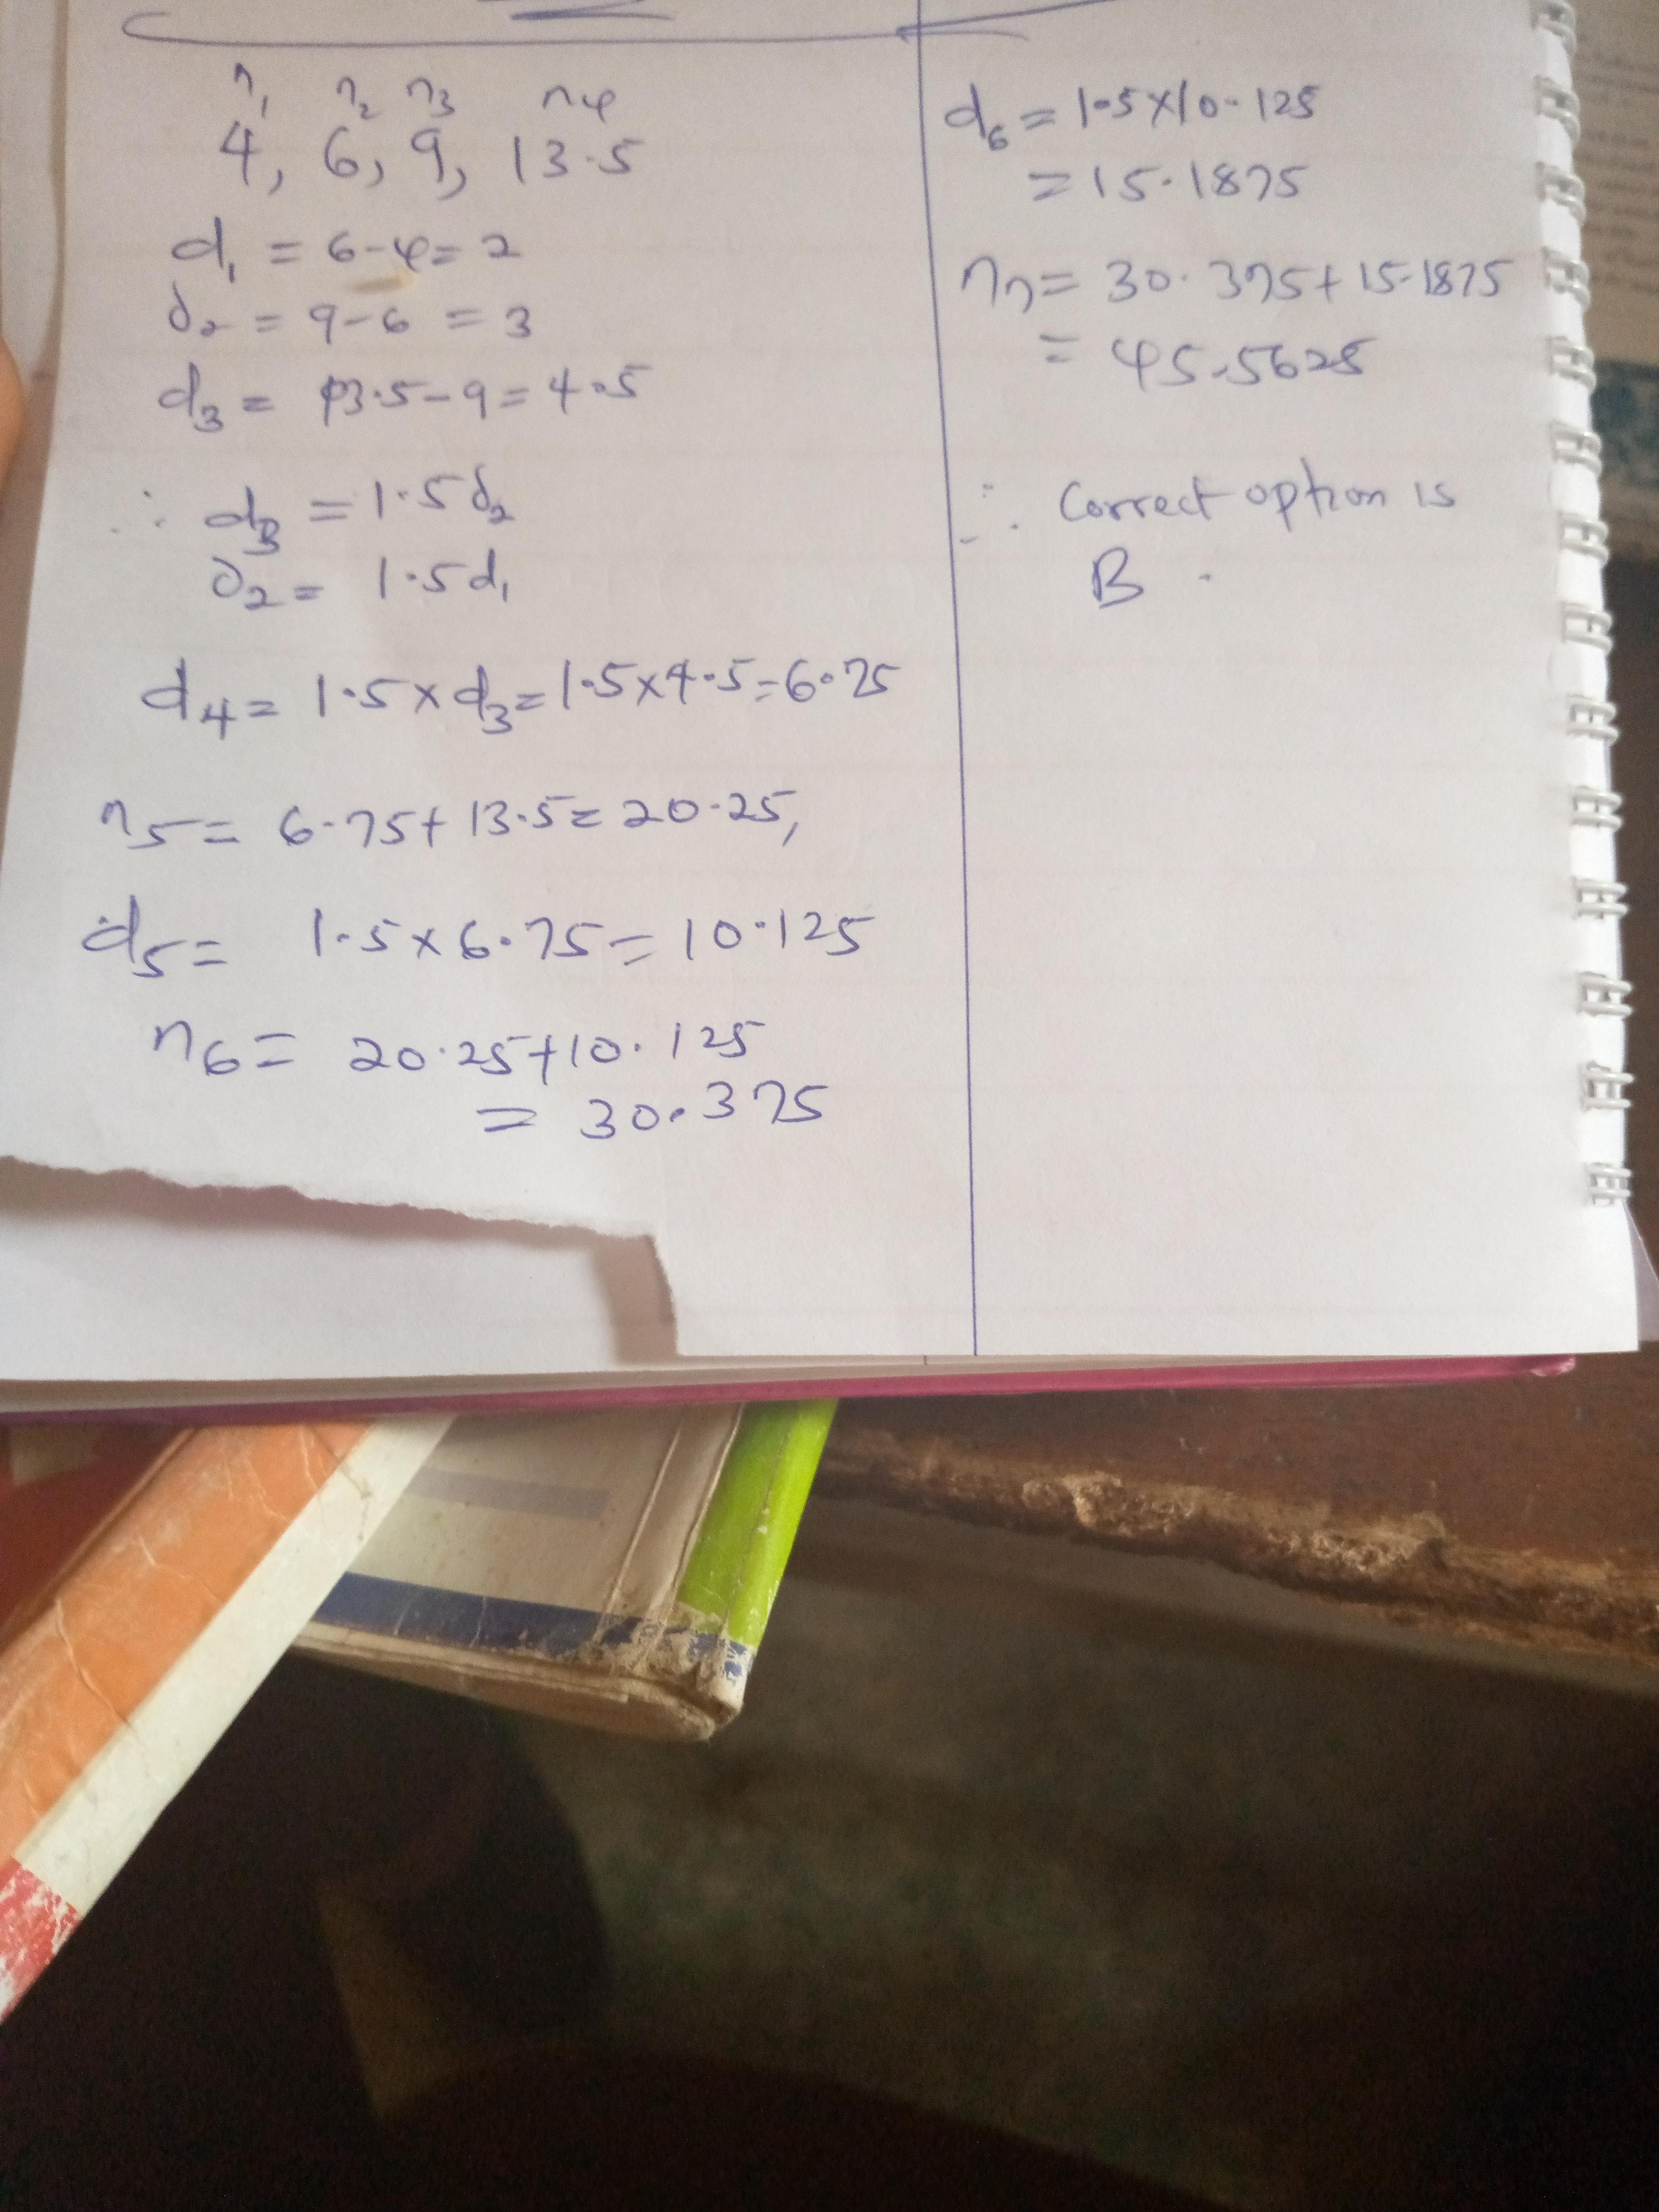 n₁ n₂ n₃ n₄
4, 6, 9, 13.5
d₁ = 6-4 = 2
d₂ = 9-6 = 3
d₃ = 13.5-9 = 4.5
∴ d₃ = 1.5d₂
d₂ = 1.5d₁
d₄ = 1.5×d₃ = 1.5×4.5 = 6.75
n₅ = 6.75+13.5 = 20.25,
d₅ = 1.5×6.75 = 10.125
n₆ = 20.25+10.125
= 30.375
d₆ = 1.5×10.125
= 15.1875
n₇ = 30.375+15.1875
= 45.5625
∴ Correct option is
B.